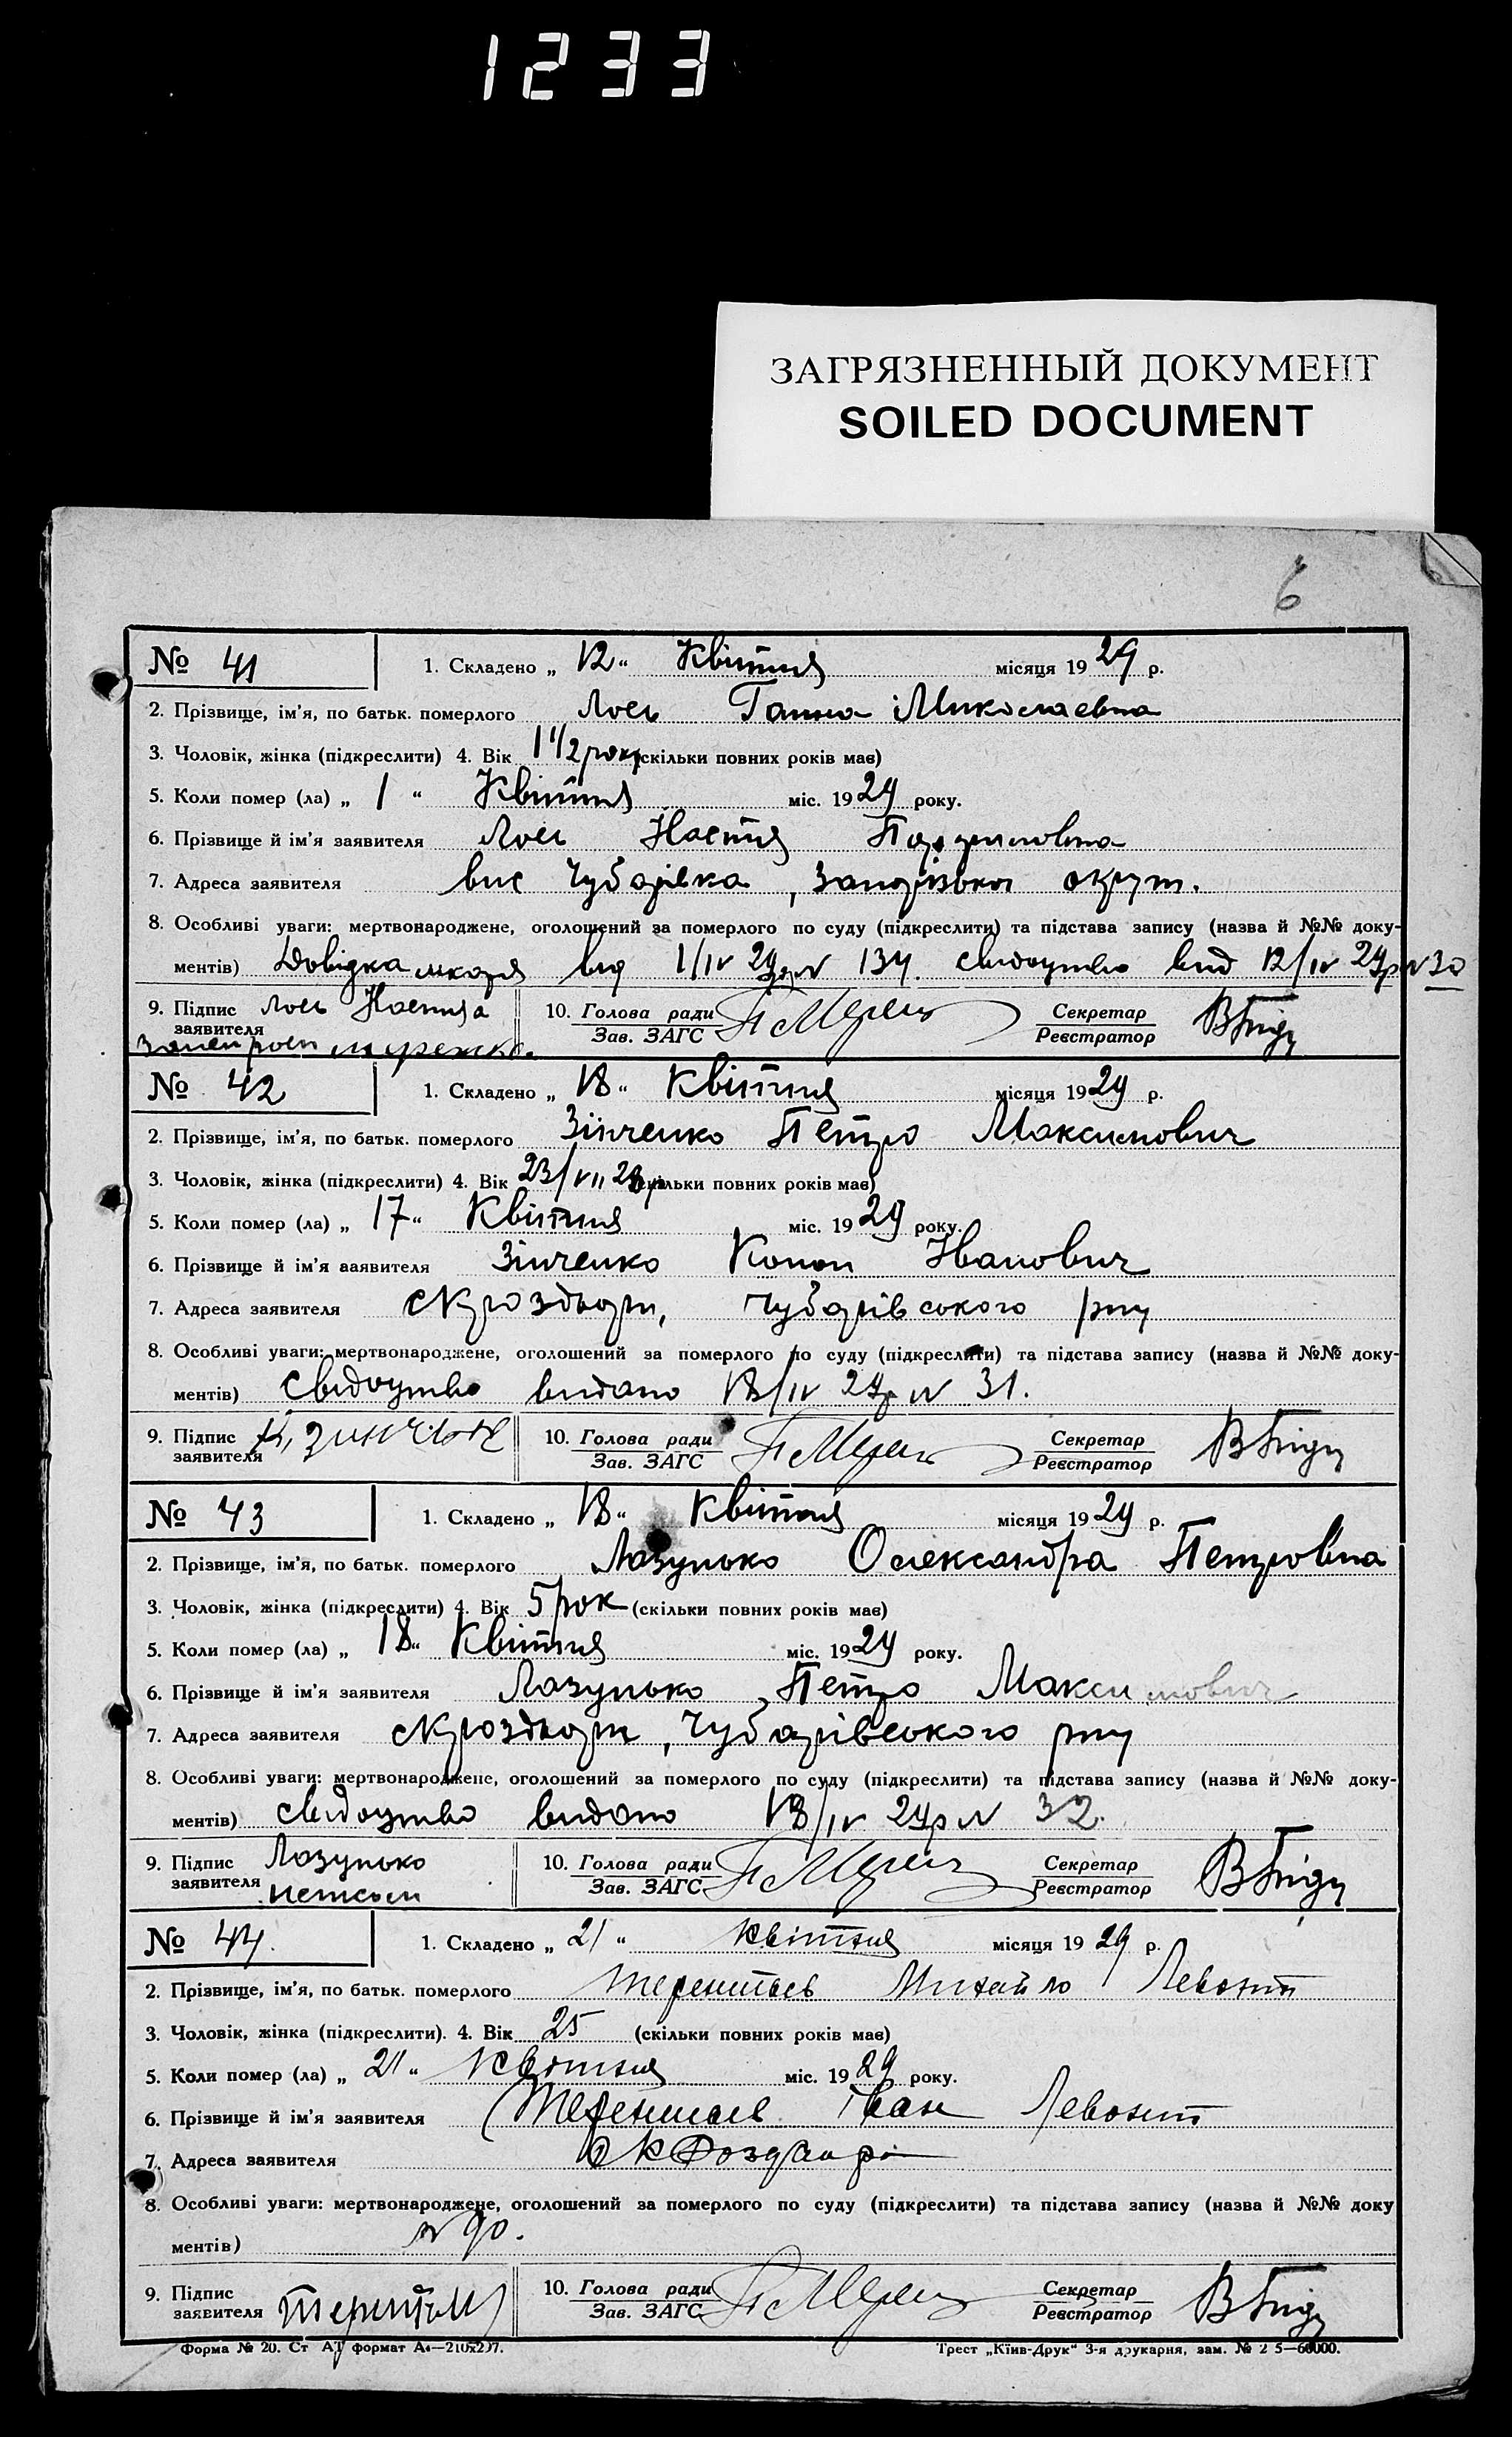 1233
ЗАГРЯЗНЕННЫЙ ДОКУМЕНТ
SOILED DOCUMENT
6
№ 41 1. Складено „ 12 “ Квітня місяця 1929 р.
2. Прізвище, ім’я, по батьк. померлого Лось Ганна Миколаевна
3. Чоловік, жінка (підкреслити) 4. Вік 1 1/2 року (скільки повних років має)
5. Коли помер (ла) „ 1 “ Квітня міс. 1929 року.
6. Прізвище й ім’я заявителя Лось Настя
7. Адреса заявителя вис Чубарівка, Запорізької округ.
8. Особливі уваги: мертвонароджене, оголошений за померлого по суду (підкреслити) та підстава запису (назва й №№ доку-
ментів) Довідка лікаря від 1/IV 29р N 134. свидоцтво вид 12/IV 29р N 30
9. Підпис заявителя Лось Настя 10. Голова ради Зав. ЗАГС Секретар Реєстратор
№ 42 1. Складено „ 18 “ Квітня місяця 1929 р.
2. Прізвище, ім’я, по батьк. померлого Зінченко Петро Максимович
3. Чоловік, жінка (підкреслити) 4. Вік 23/VII 28р (скільки повних років має)
5. Коли помер (ла) „ 17 “ Квітня міс. 1929 року.
6. Прізвище й ім’я заявителя Зінченко Конон Іванович
7. Адреса заявителя Чубарівського р-ну
8. Особливі уваги: мертвонароджене, оголошений за померлого по суду (підкреслити) та підстава запису (назва й №№ доку-
ментів) Свидоцтво видано 18/IV 29р N 31.
9. Підпис заявителя 10. Голова ради Зав. ЗАГС Секретар Реєстратор
№ 43 1. Складено „ 18 “ Квітня місяця 1929 р.
2. Прізвище, ім’я, по батьк. померлого Лазунько Олександра Петровна
3. Чоловік, жінка (підкреслити) 4. Вік 5 рок (скільки повних років має)
5. Коли помер (ла) „ 18 “ Квітня міс. 1929 року.
6. Прізвище й ім’я заявителя Лазунько Петро Максимович
7. Адреса заявителя Чубарівського р-ну
8. Особливі уваги: мертвонароджене, оголошений за померлого по суду (підкреслити) та підстава запису (назва й №№ доку-
ментів) свидоцтво видано 18/IV 29р N 32.
9. Підпис заявителя Лазунько 10. Голова ради Зав. ЗАГС Секретар Реєстратор
№ 44. 1. Складено „ 21 “ Квітня місяця 1929 р.
2. Прізвище, ім’я, по батьк. померлого Терентьев Михайло
3. Чоловік, жінка (підкреслити). 4. Вік 25 (скільки повних років має)
5. Коли помер (ла) „ 21 “ Квітня міс. 1929 року.
6. Прізвище й ім’я заявителя Терентьев Іван
7. Адреса заявителя
8. Особливі уваги: мертвонароджене, оголошений за померлого по суду (підкреслити) та підстава запису (назва й №№ доку
ментів)
9. Підпис заявителя 10. Голова ради Зав. ЗАГС Секретар Реєстратор
Форма № 20. Ст формат А4—210х297. Трест „Київ-Друк“ 3-я друкарня, зам.